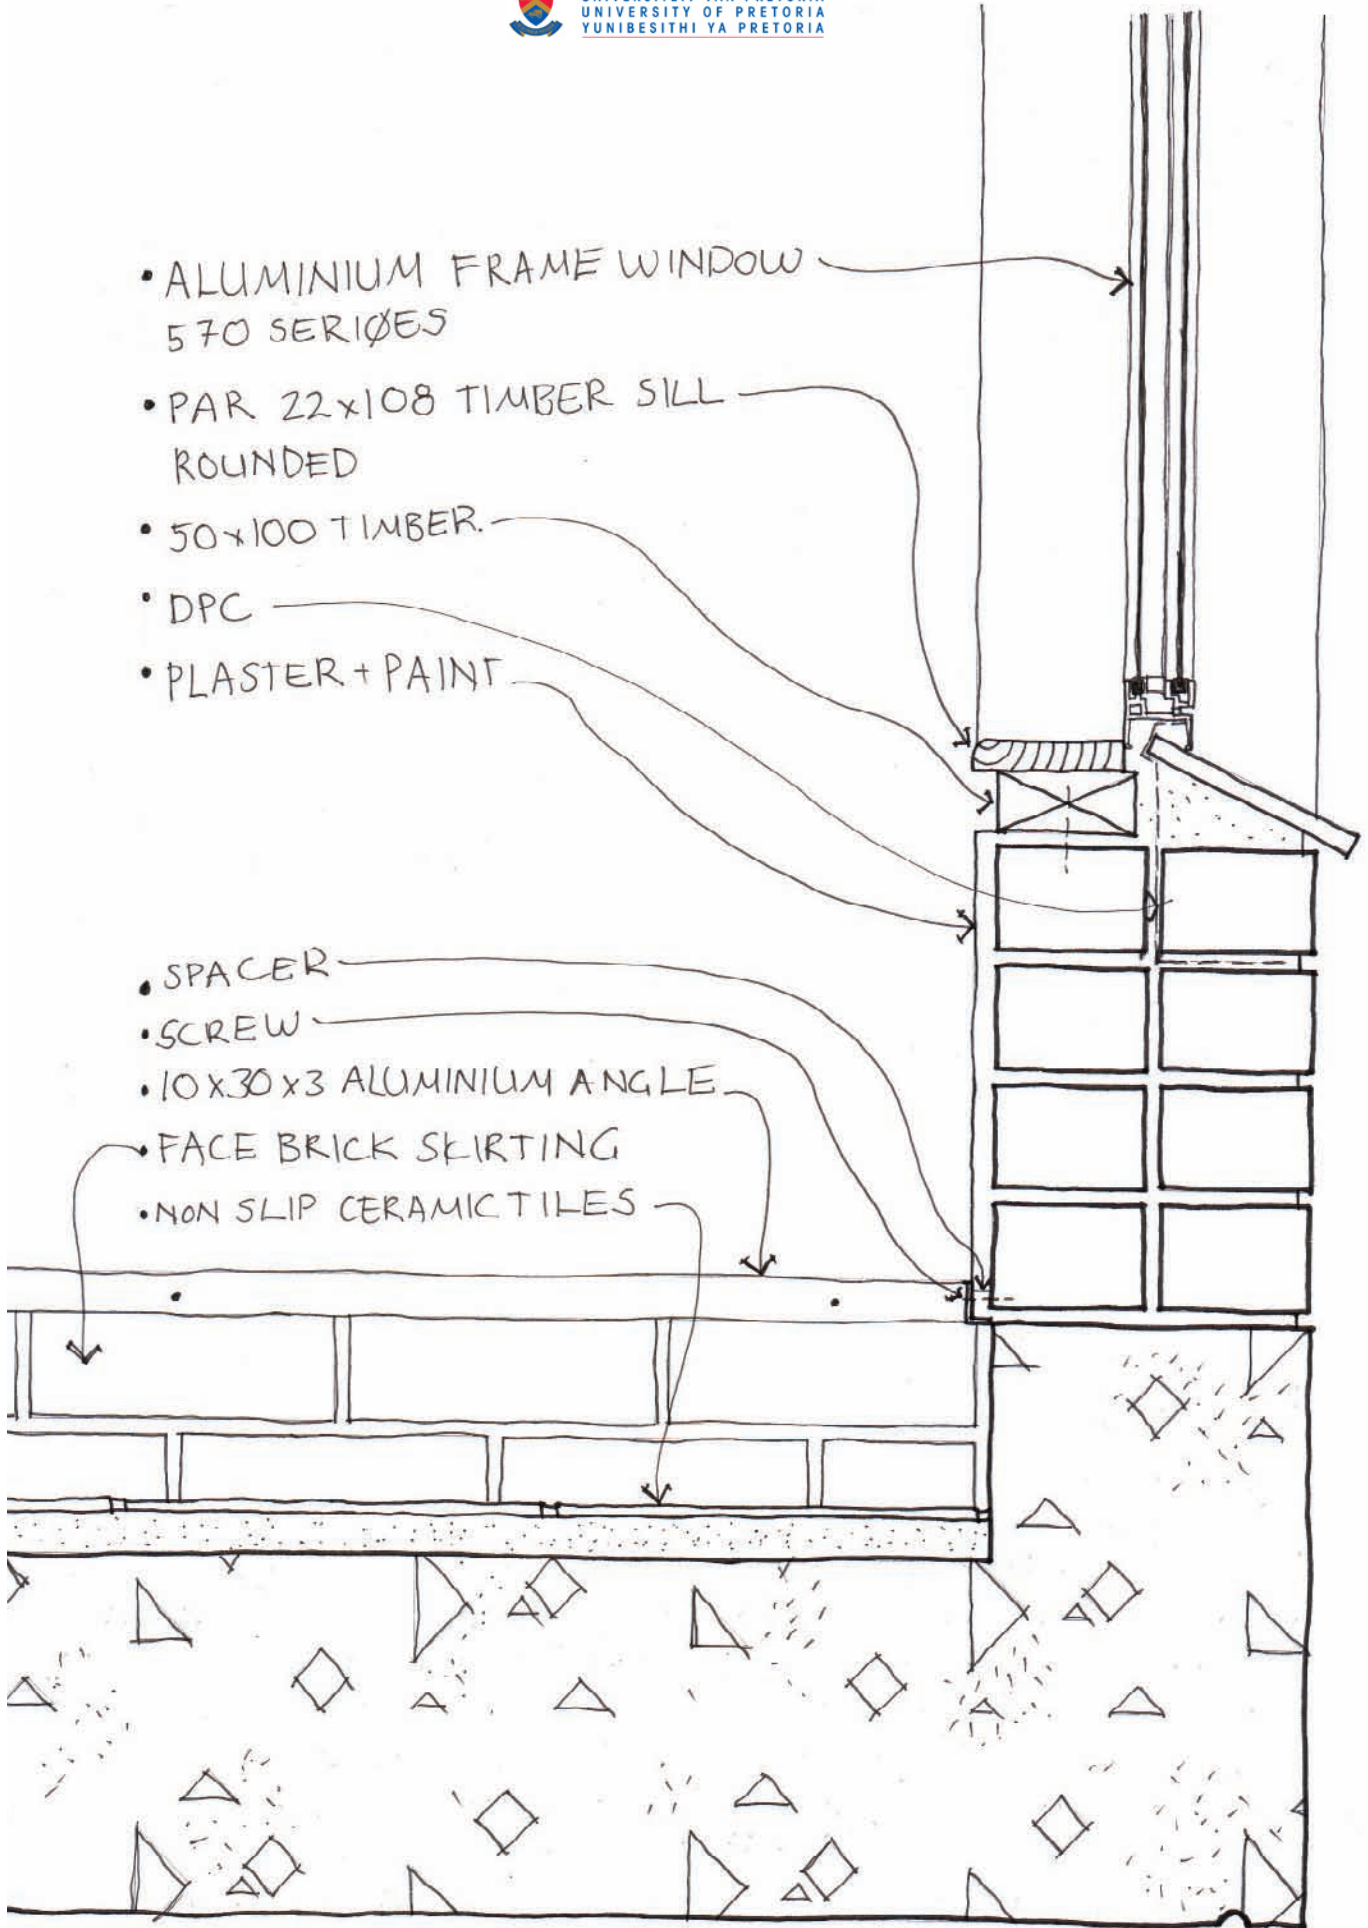 UNIVERSITY OF PRETORIA
YUNIBESITHI YA PRETORIA
• ALUMINIUM FRAME WINDOW
570 SERIØES
• PAR 22x108 TIMBER SILL
ROUNDED
• 50x100 TIMBER.
• DPC
• PLASTER + PAINT
• SPACER
• SCREW
• 10x30x3 ALUMINIUM ANGLE
• FACE BRICK SKIRTING
• NON SLIP CERAMIC TILES